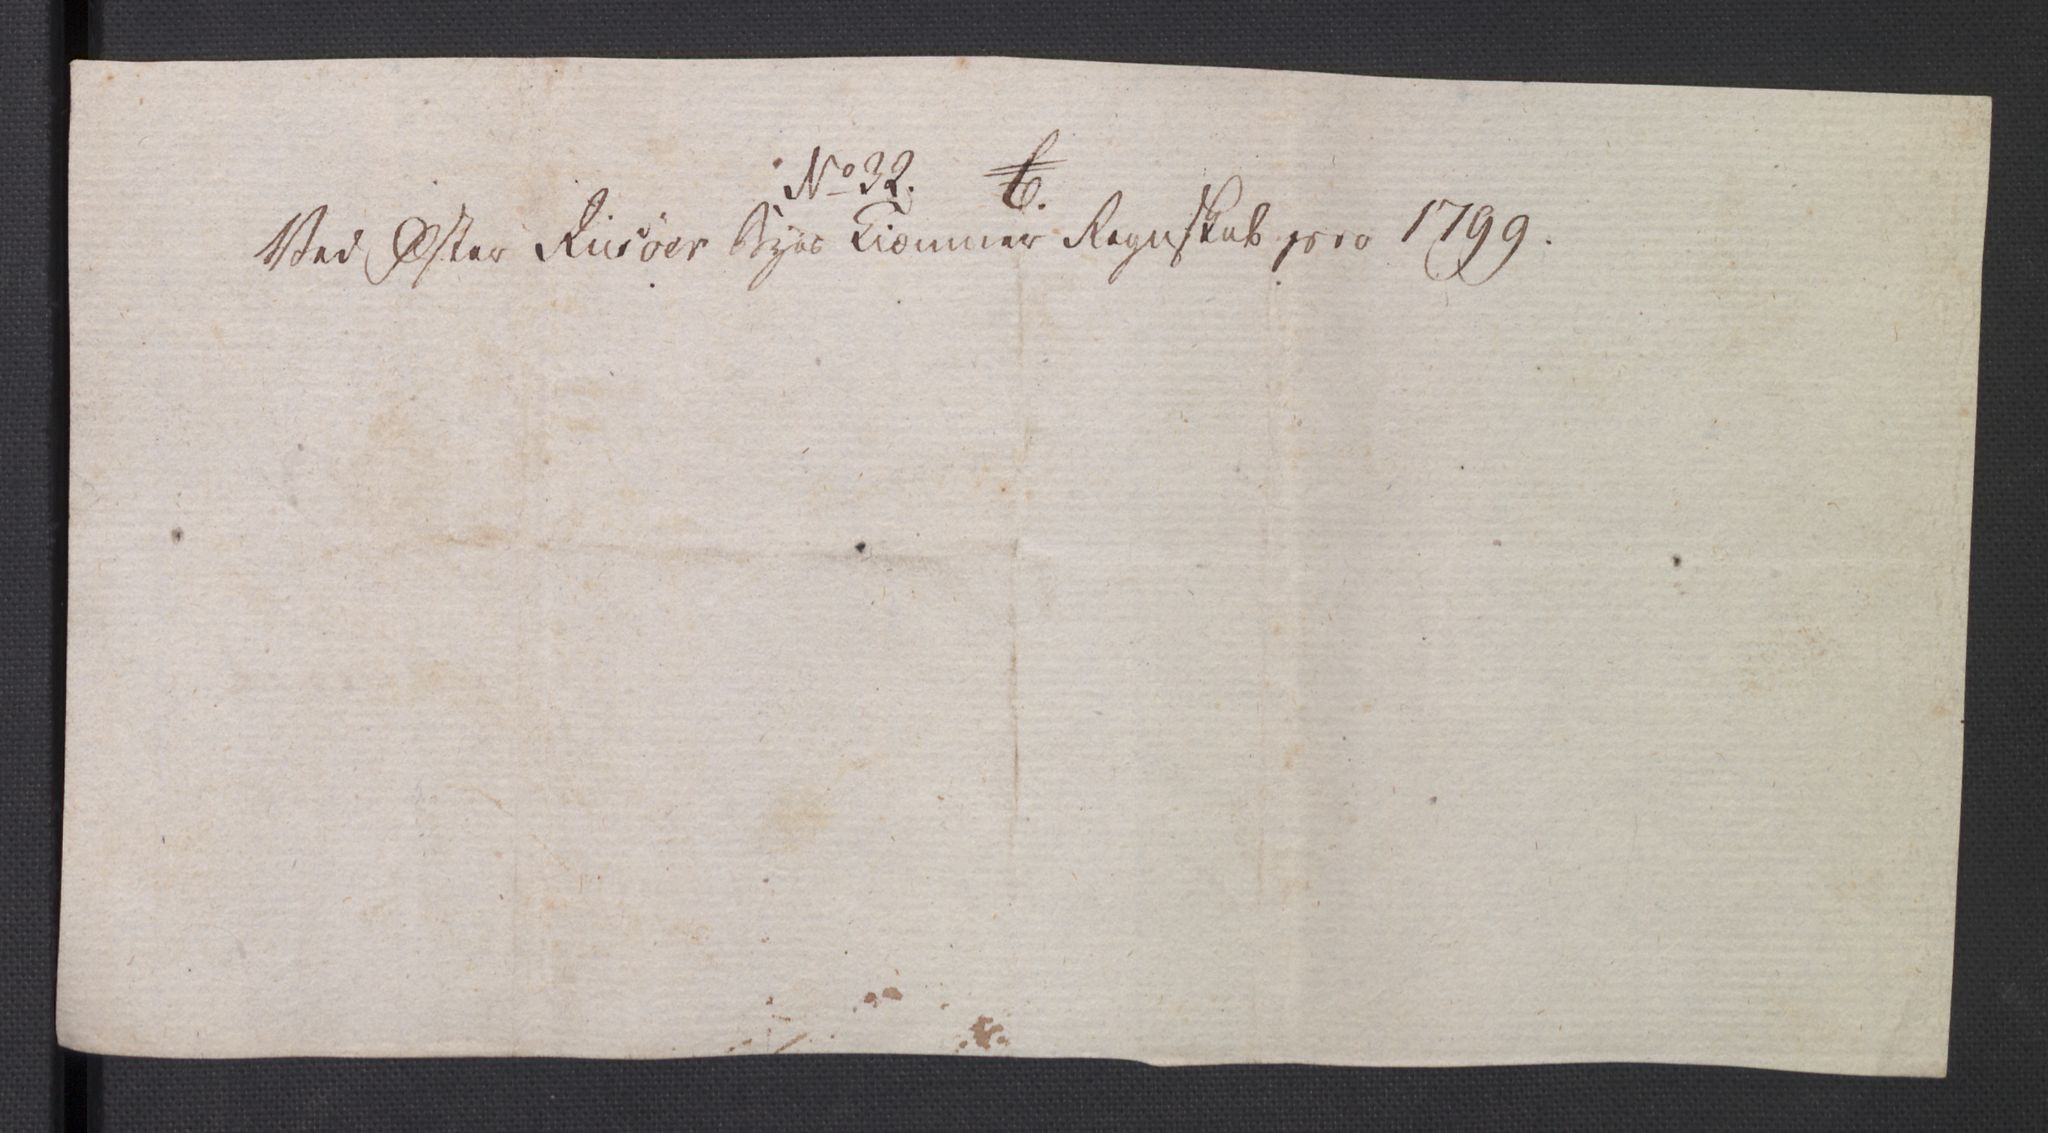 No 32. t.
Ved Øster Riisöer Byes Kiæmner Regnskab pro 1799.